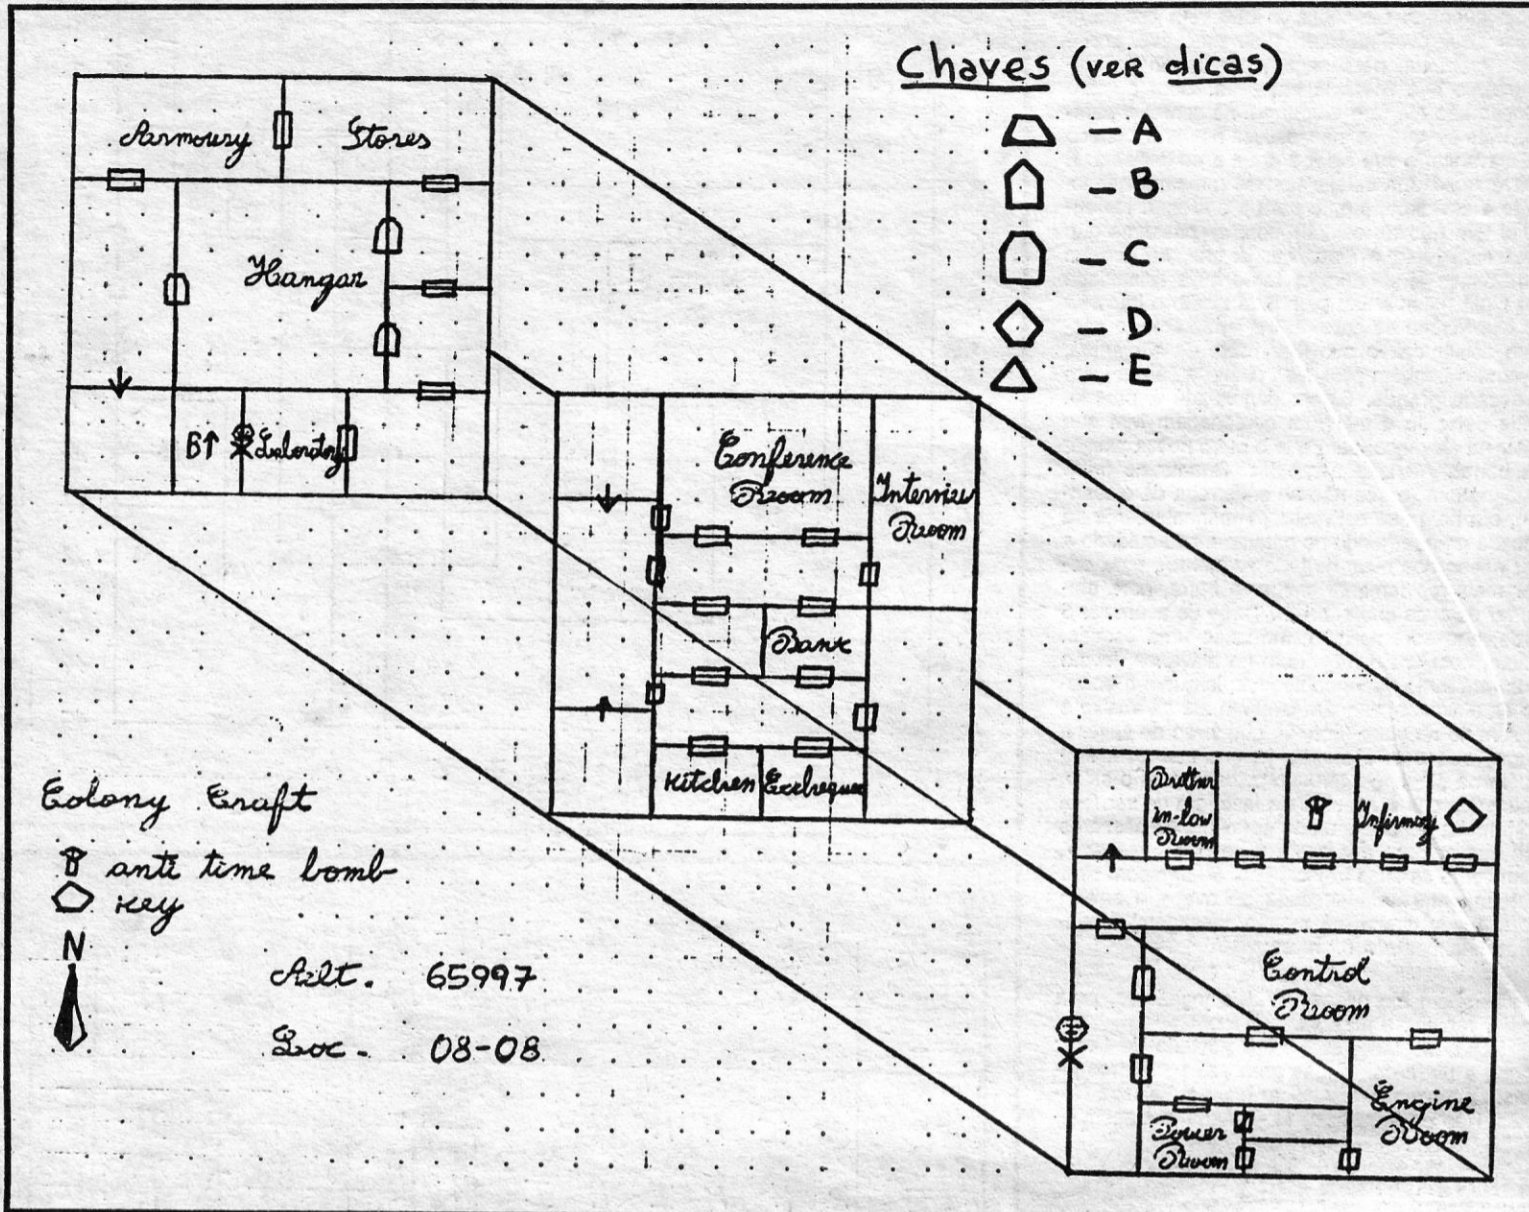 Chaves (ver dicas)
– A
– B
– C
– D
– E
Armoury
Stores
Hangar
B↑
Laboratory
Conference
Room
Interview
Room
Bank
Kitchen
Exchequer
Brother
in-low
Room
Infirmary
Control
Room
Engine
Room
Power
Room
Colony Craft
anti time bomb
key
N
Alt. 65997
Loc. 08-08